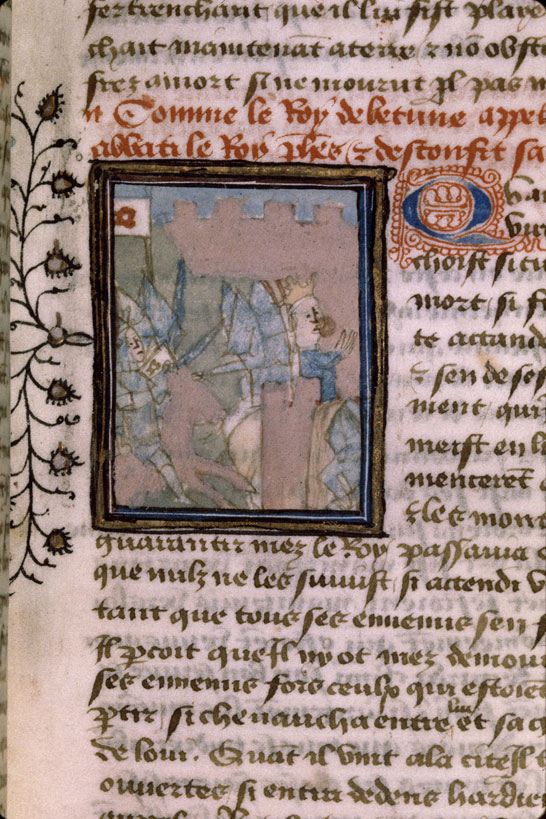 fer trenchant que il lui fist plaie
chait maintenāt a terre ⁊ nō obst
siez a mort si ne mourut pas
Comme le Roy de betune appel
abbati le Roy ⁊ desconfit sa
Qua
choisi si
mort si f
te actand
⁊ sen de ses
ment qui
meist en l
menterēt
⁊ les mont
guarantir mez le Roy passaua
que nulz ne les suiuist si actendi v
tant que tous ses ennemis sen f
Il pcoit que Il ny ot mez demou
ses ennemis fors ceulx qui estoiēt
ptir si cheuaucha entre lui et sa
de loui. Quāt il vint a la cite Il t
ouuertes si entra dedens hardie